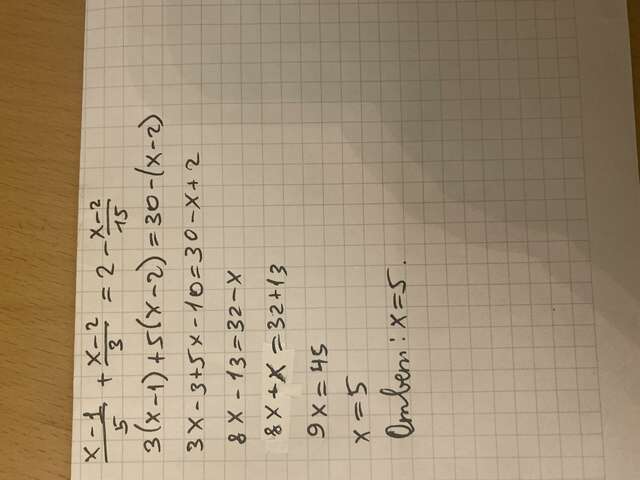 x-1/5 + x-2/3 = 2 - x-2/15
3(x-1)+5(x-2)=30-(x-2)
3x-3+5x-10=30-x+2
8x-13=32-x
8x+x=32+13
9x=45
x=5
Ответ: x=5.